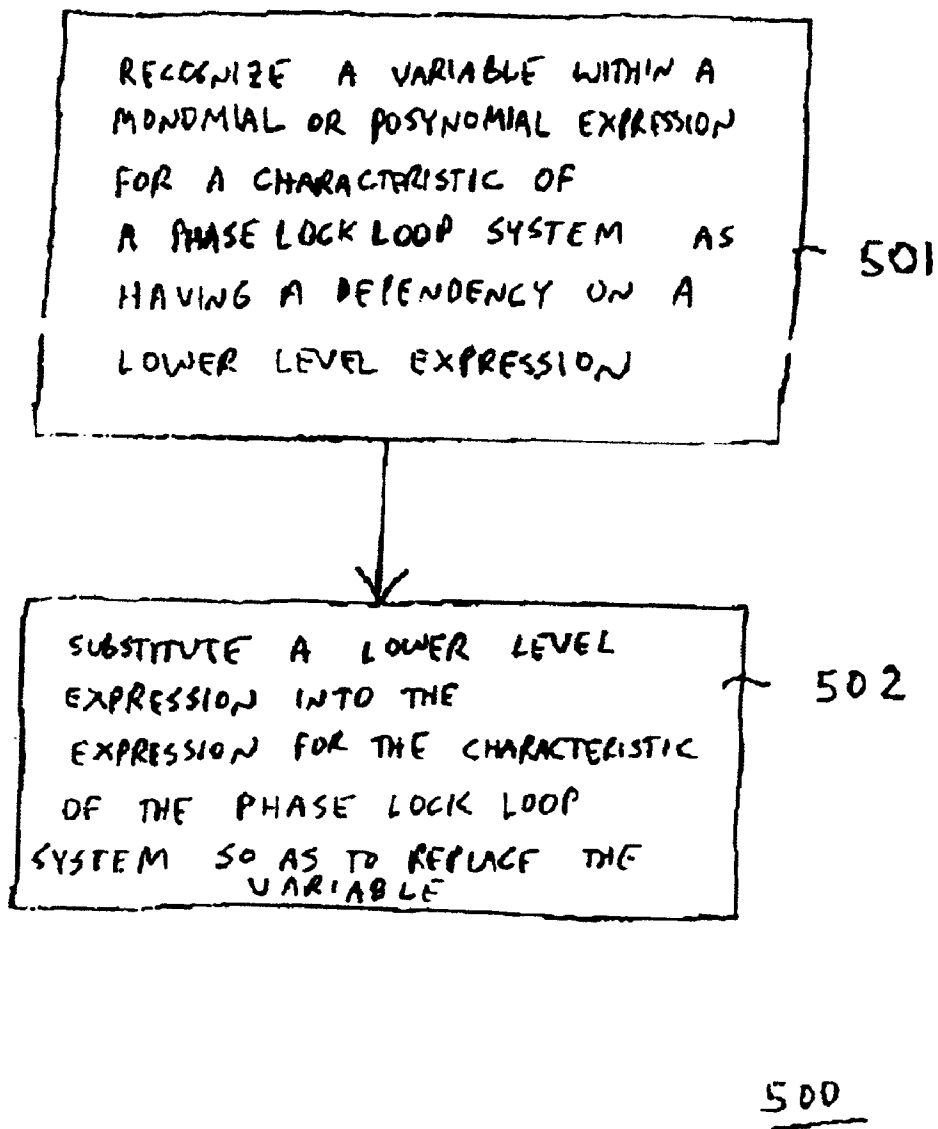 RECOGNIZE A VARIABLE WITHIN A
MONOMIAL OR POSYNOMIAL EXPRESSION
FOR A CHARACTERISTIC OF
A PHASE LOCK LOOP SYSTEM AS
HAVING A DEPENDENCY ON A
LOWER LEVEL EXPRESSION
501
SUBSTITUTE A LOWER LEVEL
EXPRESSION INTO THE
EXPRESSION FOR THE CHARACTERISTIC
OF THE PHASE LOCK LOOP
SYSTEM SO AS TO REPLACE THE
VARIABLE
502
500